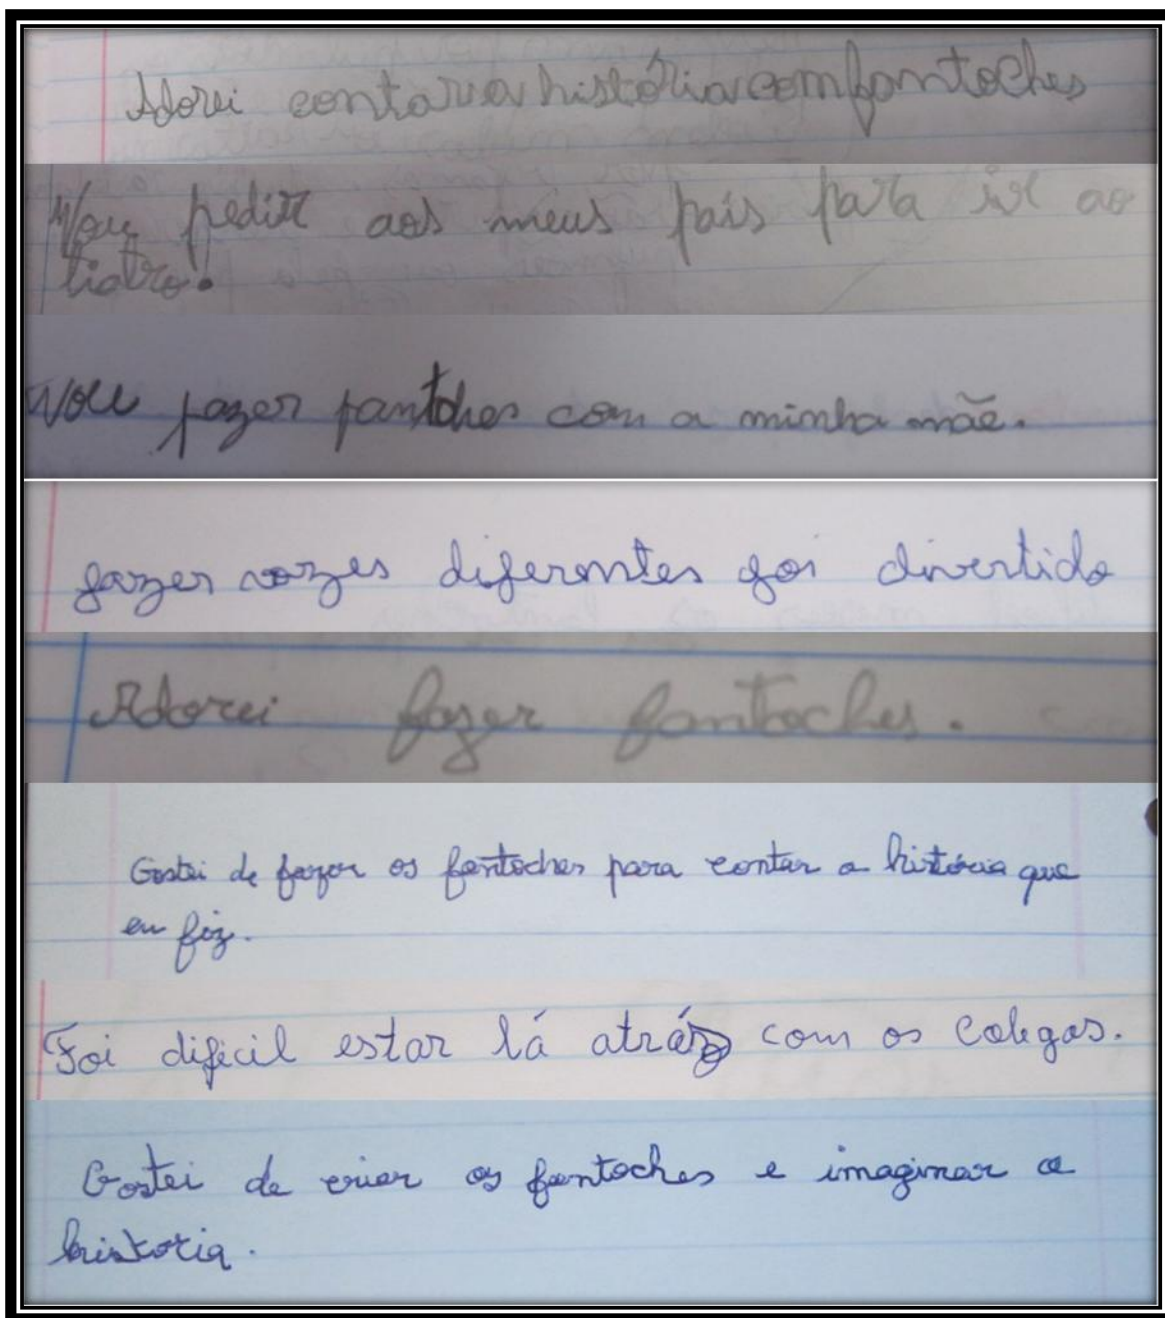 Adorei contar a história com fantoches
Vou pedir aos meus pais para ir ao
tiatro.
Vou fazer fantches com a minha mãe.
fazer vozes diferentes foi divertido
Adorei fazer fantoches.
Gostei de fazer os fantoches para contar a história que
eu fiz.
Foi dificil estar lá atrás com os colegas.
Gostei de criar os fantoches e imaginar a
historia.